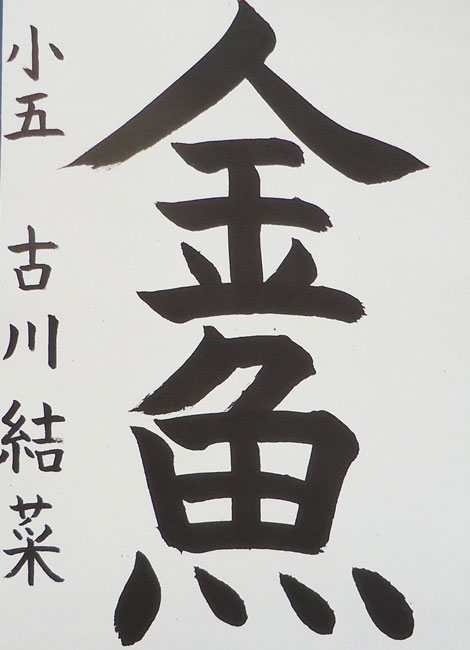 金魚
小五 古川結菜